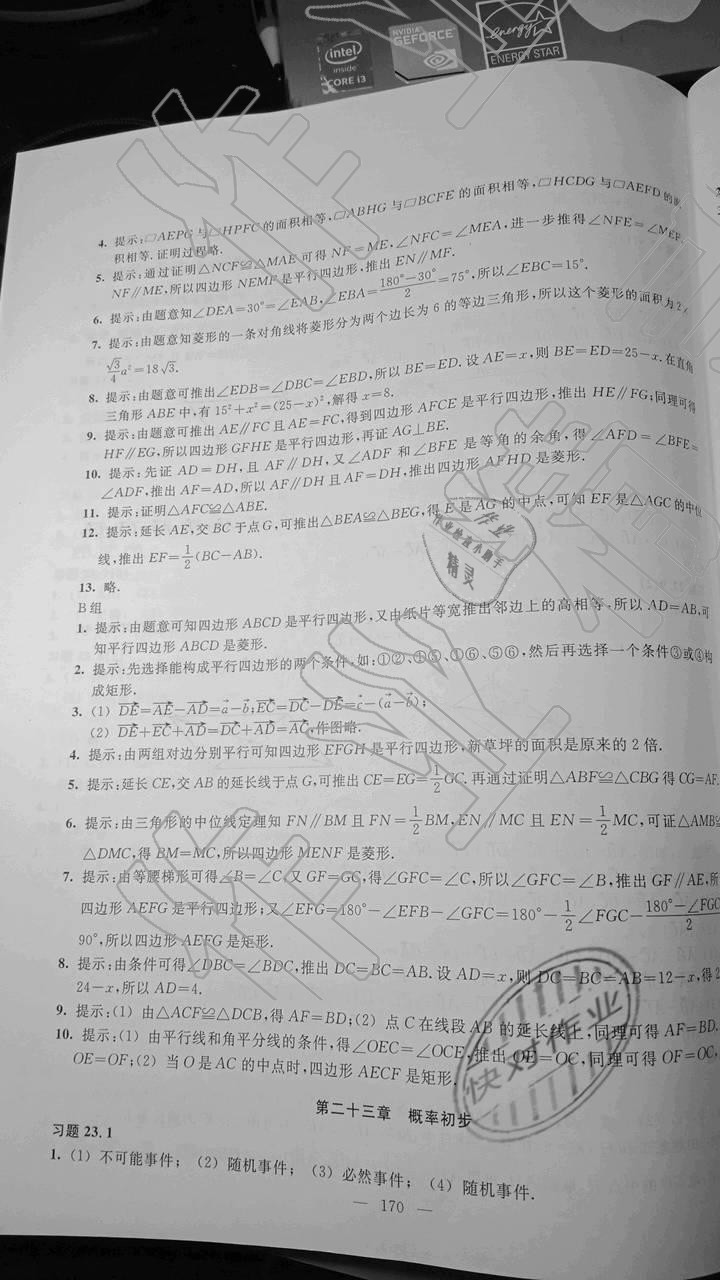 intel
inside
CORE i3
NVIDIA
GEFORCE
energy
ENERGY STAR
4. 提示:▱AEPG与▱HPFC的面积相等,▱ABHG与▱BCFE的面积相等,▱HCDG与▱AEFD的面
积相等.证明过程略.
5. 提示:通过证明△NCF≌△MAE可得NF=ME,∠NFC=∠MEA,进一步推得∠NFE=∠MEF.
NF∥ME,所以四边形NEMF是平行四边形,推出EN∥MF.
6. 提示:由题意知∠DEA=30°=∠EAB,∠EBA=(180°-30°)/2=75°,所以∠EBC=15°.
7. 提示:由题意知菱形的一条对角线将菱形分为两个边长为6的等边三角形,所以这个菱形的面积为2×
√3/4 a²=18√3.
8. 提示:由题意可推出∠EDB=∠DBC=∠EBD,所以BE=ED.设AE=x,则BE=ED=25-x.在直角
三角形ABE中,有15²+x²=(25-x)²,解得x=8.
9. 提示:由题意可推出AE∥FC且AE=FC,得到四边形AFCE是平行四边形,推出HE∥FG;同理可得
HF∥EG,所以四边形GFHE是平行四边形,再证AG⊥BE.
10. 提示:先证AD=DH,且AF∥DH,又∠ADF和∠BFE是等角的余角,得∠AFD=∠BFE=
∠ADF,推出AF=AD,所以AF∥DH且AF=DH,推出四边形AFHD是菱形.
11. 提示:证明△AFC≌△ABE.
12. 提示:延长AE,交BC于点G,可推出△BEA≌△BEG,得E是AG的中点,可知EF是△AGC的中位
线,推出EF=1/2(BC-AB).
13. 略.
B组
1. 提示:由题意可知四边形ABCD是平行四边形,又由纸片等宽推出邻边上的高相等,所以AD=AB,可
知平行四边形ABCD是菱形.
2. 提示:先选择能构成平行四边形的两个条件,如:①②、①⑤、①⑥、⑤⑥,然后再选择一个条件③或④构
成矩形.
3. (1) DE→=AE→-AD→=a→-b→;EC→=DC→-DE→=c→-(a→-b→);
(2) DE→+EC→+AD→=DC→+AD→=AC→,作图略.
4. 提示:由两组对边分别平行可知四边形EFGH是平行四边形,新草坪的面积是原来的2倍.
5. 提示:延长CE,交AB的延长线于点G,可推出CE=EG=1/2GC.再通过证明△ABF≌△CBG得CG=AF.
6. 提示:由三角形的中位线定理知FN∥BM且FN=1/2BM,EN∥MC且EN=1/2MC,可证△AMB≌
△DMC,得BM=MC,所以四边形MENF是菱形.
7. 提示:由等腰梯形可得∠B=∠C.又GF=GC,得∠GFC=∠C,所以∠GFC=∠B,推出GF∥AE,所
四边形AEFG是平行四边形;又∠EFG=180°-∠EFB-∠GFC=180°-1/2∠FGC-(180°-∠FGC)/2
90°,所以四边形AEFG是矩形.
8. 提示:由条件可得∠DBC=∠BDC,推出DC=BC=AB.设AD=x,则DC=BC=AB=12-x,得2
24-x,所以AD=4.
9. 提示:(1) 由△ACF≌△DCB,得AF=BD;(2) 点C在线段AB的延长线上,同理可得AF=BD.
10. 提示:(1) 由平行线和角平分线的条件,得∠OEC=∠OCE,推出OE=OC,同理可得OF=OC,
OE=OF;(2) 当O是AC的中点时,四边形AECF是矩形.
第二十三章 概率初步
习题23.1
1. (1) 不可能事件; (2) 随机事件; (3) 必然事件; (4) 随机事件.
— 170 —
作业
作业检查小助手
精灵
快对作业